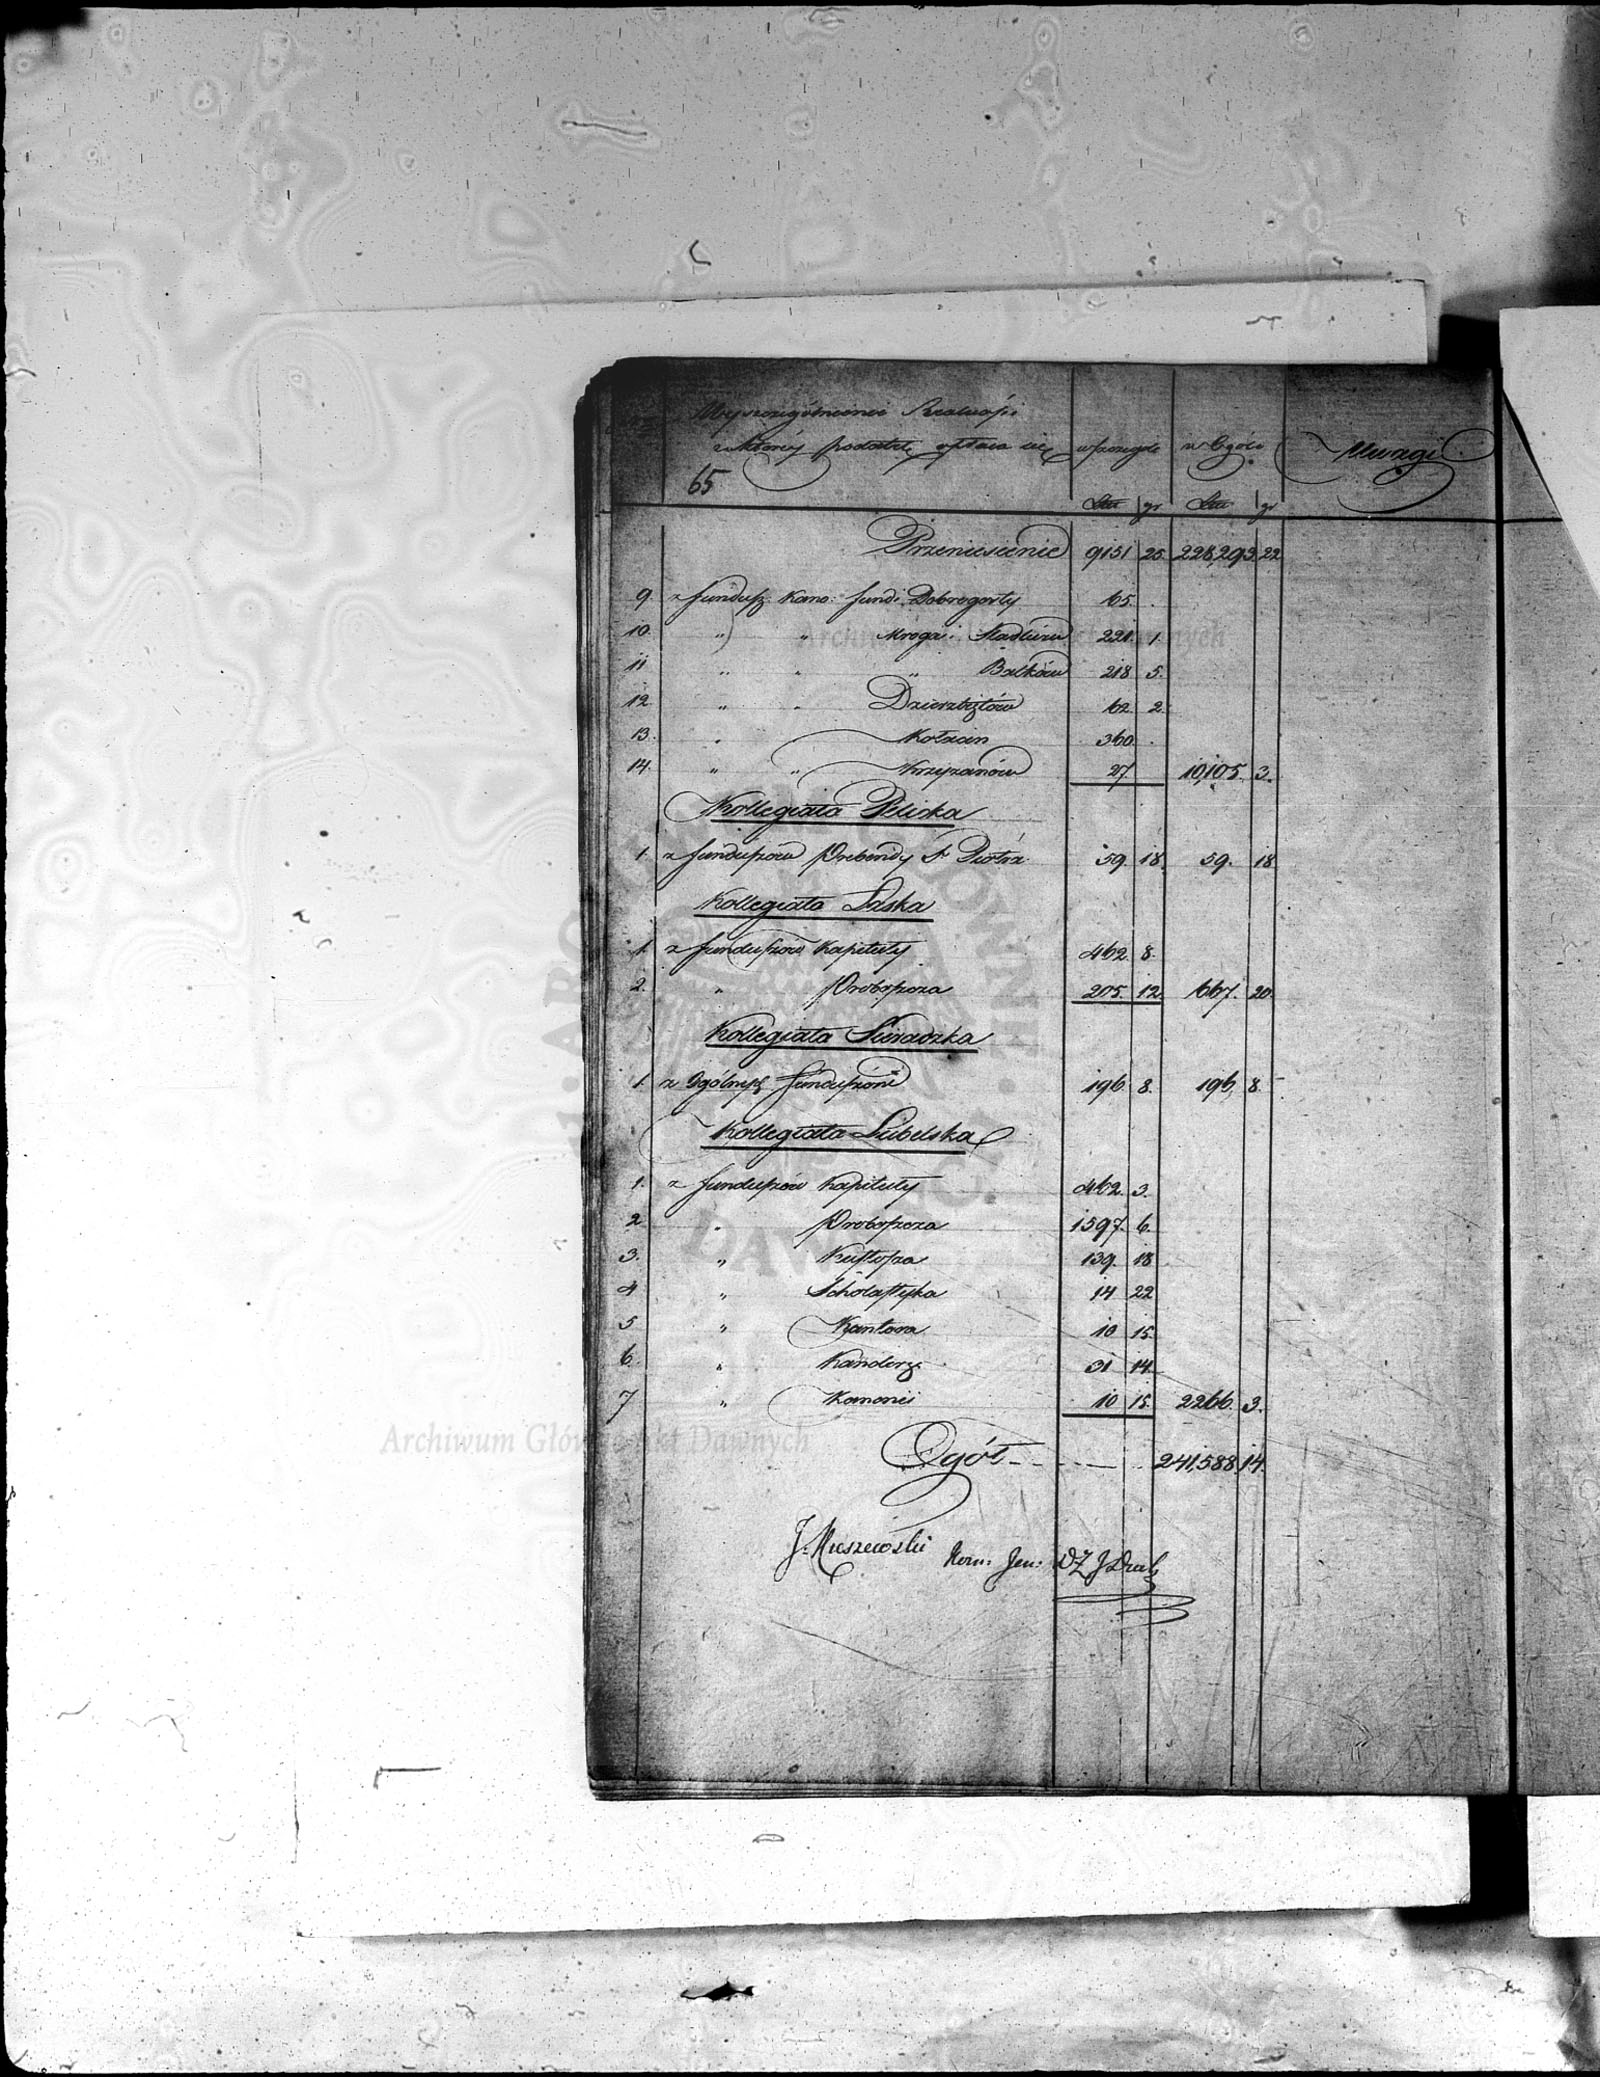 Wyszczególnienie Realności
z której podatek opłaca się w szczególe w Ogóle Uwagi
65
Złt gr Złt gr
Przeniesienie 9151 25 228,293 22
9. z fundusz: Kano: fund: Dobrogosty 65. .
10. " " Mroga i 221. 1.
11 " " " Batków 218 5.
12 " " Dzierzbiętów 62. 2.
13. " Kotscin 360. .
14. " " Krzyzanów 27. 10,105. 3.
Kollegiata Pilicka
1. z funduszów Prebendy S. Piotra 59. 18. 59. 18
Kollegiata Łaska
1. z funduszów Kapituły 462. 8.
2. " Proboszcza 205. 12. 667. 20.
Kollegiata Sieradzka
1. z Ogólnych funduszów 196. 8. 196. 8.
Kollegiata Lubelska
1. z funduszów Kapituły 462. 3.
2 " Proboszcza 1597. 6.
3. " Kustosza 139. 18
4 " Scholastyka 14 22
5 " Kantora 10 15.
6. " Kanclerz: 31 14.
7 " Kanonii 10 15. 2266. 3.
Ogół 241,588 14.
Kom: Jen:
Archiwum Główne Akt Dawnych
Archiwum Główne Akt Dawnych